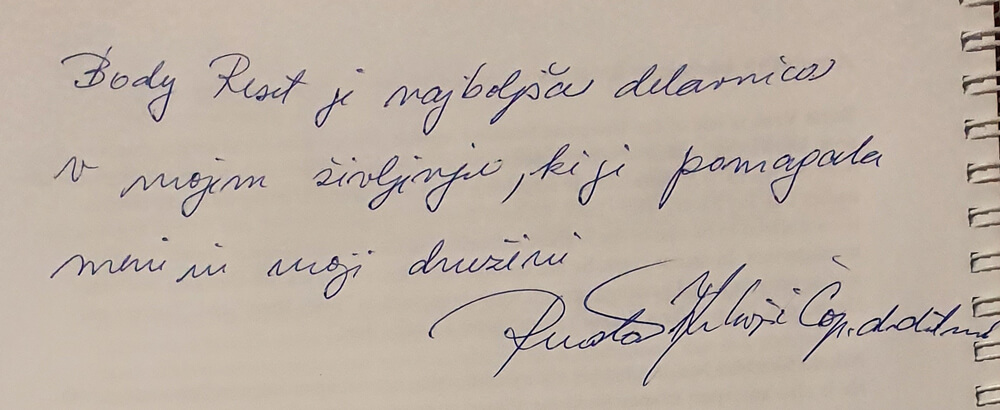 Body Reset je najboljša delavnica
v mojem življenju, ki je pomagala
meni in moji družini
Čop